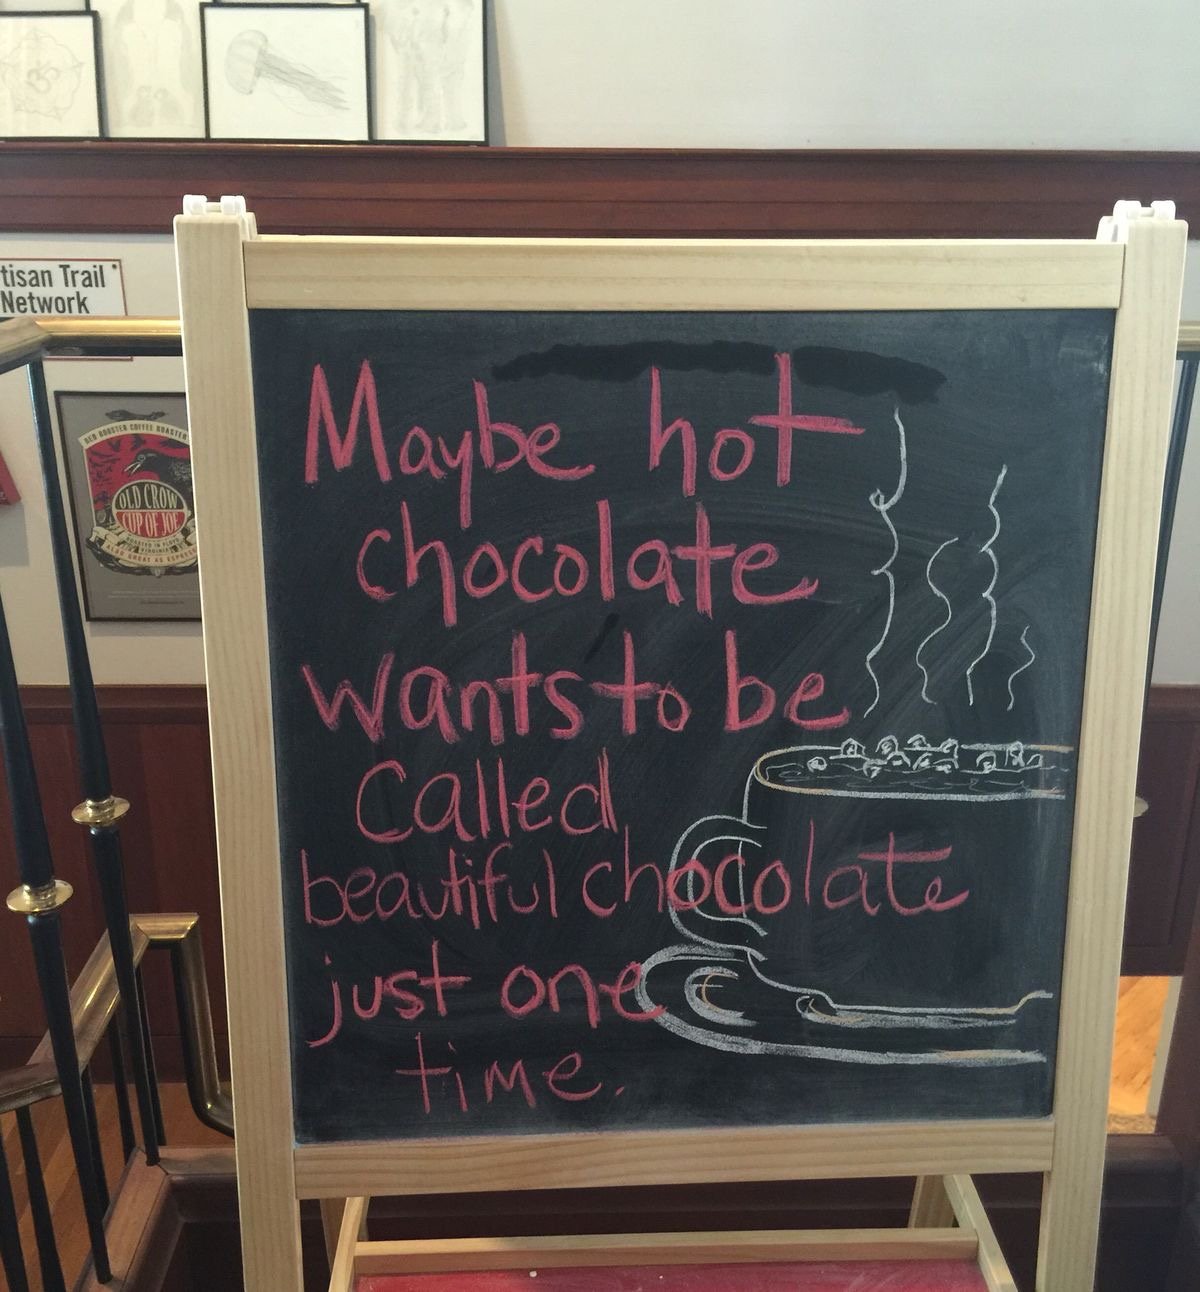 tisan Trail
Network
RED ROOSTER COFFEE ROASTER
OLD CROW
CUP OF JOE
ROASTED IN FLOYD
VIRGINIA
ALSO GREAT AS ESPRESS
Maybe hot
chocolate
wants to be
Called
beautiful chocolate
just one
time.